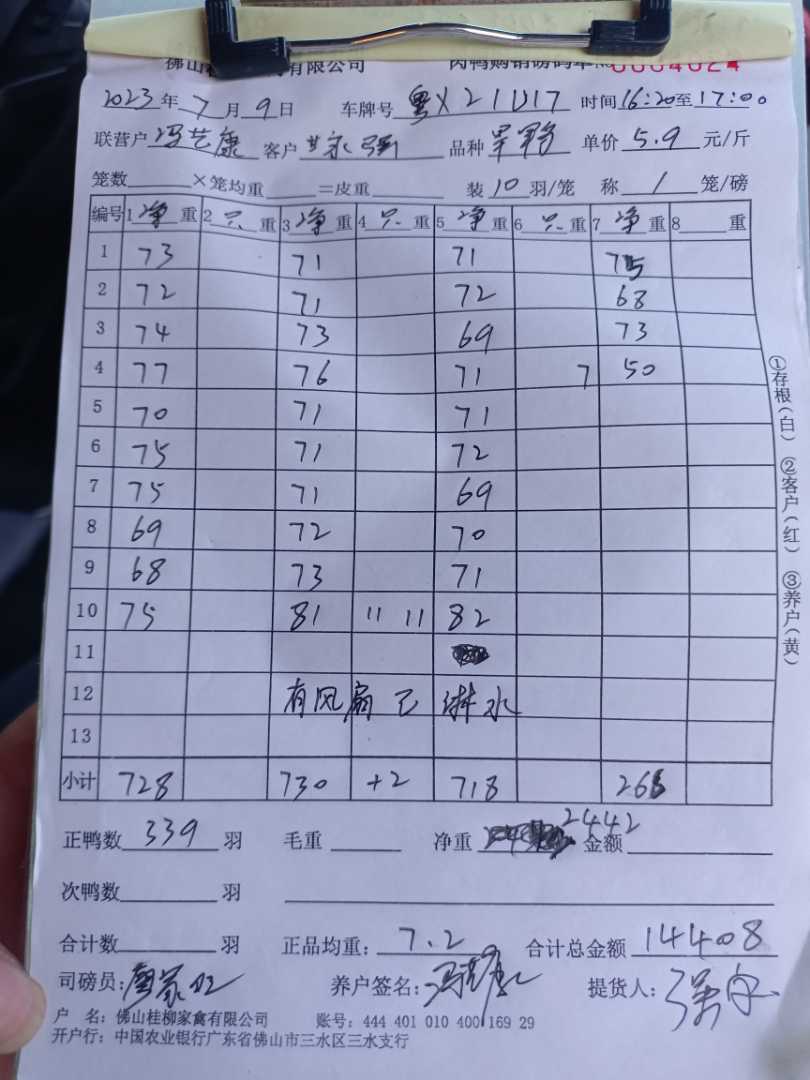 佛山桂 有限公司 肉鸭购销磅码单 No 0004024
2023年7月9日 车牌号 粤X21U17 时间16:20至17:00
联营户 冯艺康 客户 品种 单价5.9元/斤
笼数 ×笼均重 =皮重 装10羽/笼 称1笼/磅
编号 1净重 2只重 3净重 4只重 5净重 6只重 7净重 8 重
1 73 71 71 75
2 72 71 72 68
3 74 73 69 73
4 77 76 71 7 50
5 70 71 71
6 75 71 72
7 75 71 69
8 69 72 70
9 68 73 71
10 75 81 11 11 82
11
12 有风扇已淋水
13
小计 728 730 +2 718 266
正鸭数 339 羽 毛重 净重 2442 金额
次鸭数 羽
合计数 羽 正品均重: 7.2 合计总金额 14408
司磅员: 养户签名: 提货人:
户 名: 佛山桂柳家禽有限公司 账号: 444 401 010 400 169 29
开户行: 中国农业银行广东省佛山市三水区三水支行
①存根(白) ②客户(红) ③养户(黄)